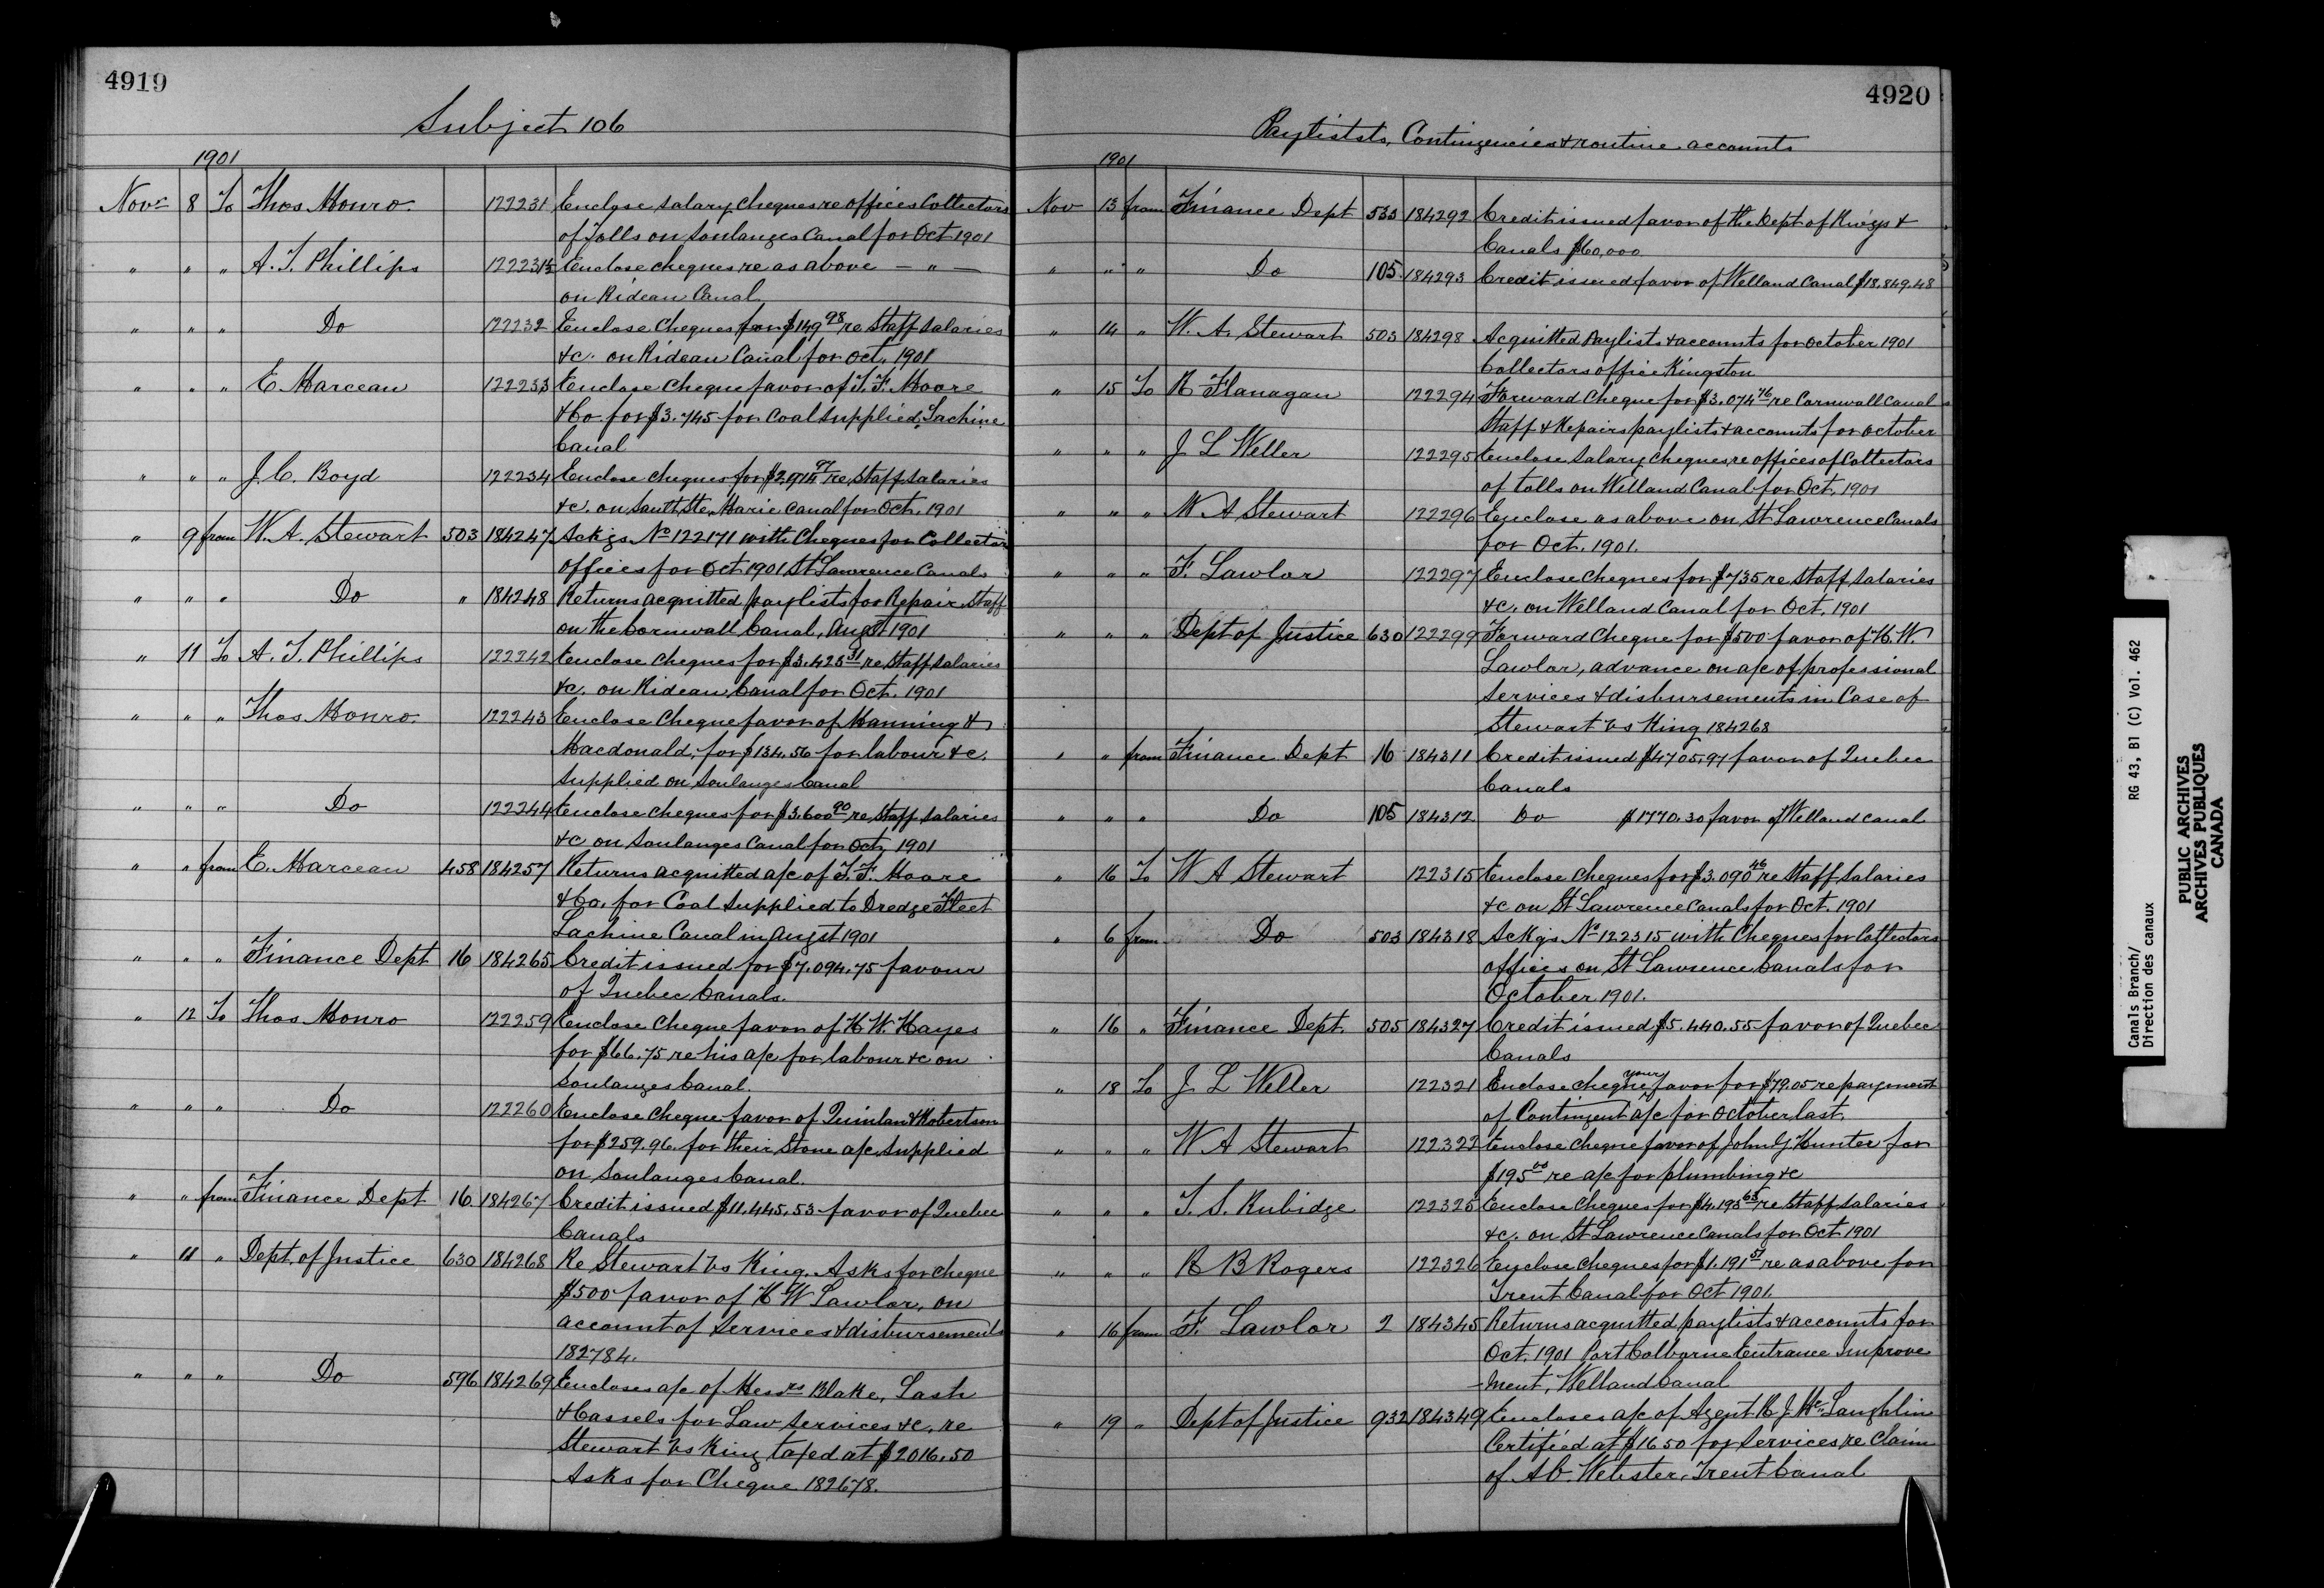 4919
Subject 106
1901
Novr 8 To Thos Monro. 122231 Enclose salary cheques re offices Collectors
of Tolls on Soulanges Canal for Oct 1901
" " " A. T. Phillips 122231½ Enclose cheques re as above — " —
on Rideau Canal
" " " Do 122232 Enclose cheques for $149 98 re Staff salaries
&c. on Rideau Canal for Oct. 1901
" " " E. Marceau 122233 Enclose cheque favor of T. F. Moore
& Co. for $3.745 for coal supplied, Lachine
Canal
" " " J. C. Boyd 122234 Enclose cheques for re Staff salaries
&c. on Sault Ste Marie Canal for Oct. 1901
" 9 from W. A. Stewart 503 184247 Ackgs. No 122171 with Cheques for Collector
offices for Oct 1901 St Lawrence Canals
" " " Do " 184248 Returns acquitted paylists for Repair Staff
on the Cornwall Canal, Augst 1901
" 11 To A. T. Phillips 122242 Enclose cheques for $3.425 31 re Staff salaries
&c. on Rideau Canal for Oct. 1901
" " " Thos Monro. 122243 Enclose Cheque favor of Manning &
Macdonald, for $134.56 for labour &c.
supplied on Soulanges Canal
" " " Do 122244 Enclose cheques for $3.600 90 re Staff salaries
&c on Soulanges Canal for Oct, 1901
" " from E. Marceau 458 184257 Returns acquitted a/c of T. F. Moore
& Co. for Coal supplied to Dredge Fleet
Lachine Canal in Augst 1901
" " " Finance Dept 16 184265 Credit issued for $7.094.75 favour
of Quebec Canals.
" 12 To Thos Monro 122259 Enclose Cheque favor of H W. Hayes
for $66.75 re his a/c for labour &c on
Soulanges Canal.
" " " Do 122260 Enclose cheque favor of Quinlan & Robertson
for $259.96. for their Stone a/c supplied
on Soulanges Canal.
" " from Finance Dept 16. 184267 Credit issued $11.445.53 favor of Quebec
Canals
" 11 " Dept. of Justice 630 184268 Re Stewart vs King. Asks for cheque
$500 favor of H W Lawlor, on
account of services & disbursements
182784.
" " " Do 596 184269 Encloses a/c of Messrs Blake, Lash
& Cassels for Law services &c. re
Stewart vs King taxed at $2016.50
Asks for Cheque 182678.
4920
Payliststs, Contingencies & routine accounts
1901
Nov 13 from Finance Dept 533 184292 Credit issued favor of the Dept of Rwys &
Canals $60,000
" " " Do 105 184293 Credit issued favor of Welland Canal $18.849.48
" 14 " W. A. Stewart 503 184298 Acquitted Paylists & accounts for October 1901
Collectors office Kingston
" 15 To R Flanagan 122294 Forward Cheque for $3.074 76 re Cornwall Canal
Staff & Repairs paylists & accounts for October
" " " J L Weller 122295 Enclose salary cheques re offices of Collectors
of tolls on Welland Canal for Oct, 1901
" " " W A Stewart 122296 Enclose as above on St Lawrence Canals
for Oct. 1901.
" " " F. Lawlor 122297 Enclose cheques for $735 re Staff salaries
&c. on Welland Canal for Oct. 1901
" " " Dept of Justice 630 122299 Forward Cheque for $500 favor of H. W.
Lawlor, advance on a/c of professional
services & disbursements in Case of
Stewart vs King 184268
" " from Finance Dept 16 184311 Credit issued $4705.97 favor of Quebec
Canals
" " " Do 105 184312 Do $1770.30 favor of Welland Canal
" 16 To W A Stewart 122315 Enclose cheques for $3.090 46 re Staff salaries
&c on St Lawrence Canals for Oct. 1901
" 6 from Do 503 184318 Ackgs No 122315 with Cheques for Collectors
offices on St Lawrence Canals for
October 1901.
" 16 " Finance Dept. 505 184327 Credit issued $5.440.55 favor of Quebec
Canals
" 18 To J L Weller 122321 Enclose cheque your favor for $79.05 re payment
of Contingent a/c for October last
" " " W A Stewart 122322 Enclose cheque favor of John G Hunter for
$195 00 re a/c for plumbing &c
" " " T. S. Rubidge 122325 Enclose cheques for $4.195 63 re Staff salaries
&c. on St Lawrence Canals for Oct 1901
" " " R B Rogers 122326 Enclose cheques for $1.191 57 re as above for
Trent Canal for Oct 1901.
" 16 from F. Lawlor 2 184345 Returns acquitted paylists & accounts for
Oct. 1901 Port Colborne Entrance Improve
-ment, Welland Canal
" 19 " Dept of Justice 932 184349 Encloses a/c of Agent R J McLaughlin
Certified at $16 50 for services re Claim
of A C. Webster, Trent Canal
Canals Branch/
Direction des canaux
RG 43, B1 (C) Vol. 462
PUBLIC ARCHIVES
ARCHIVES PUBLIQUES
CANADA